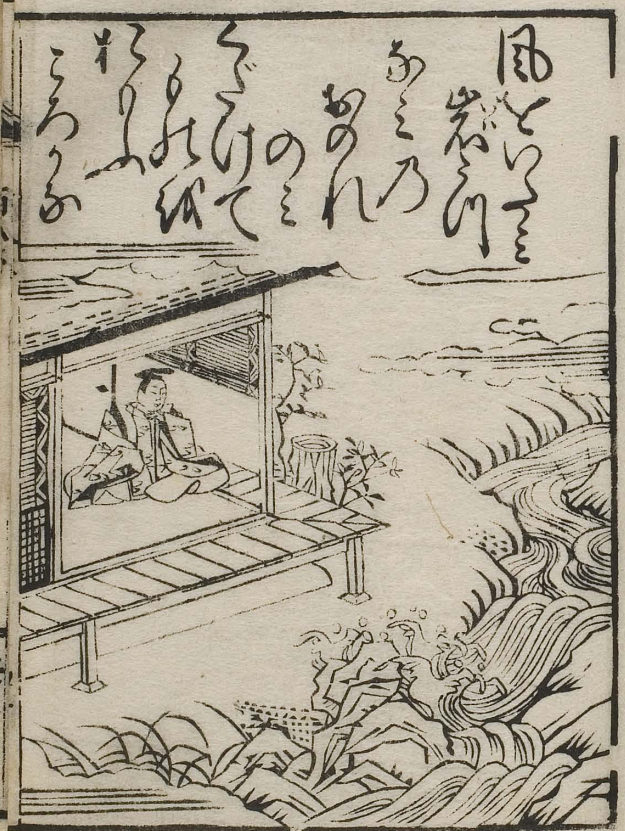 風をいたミ
岩うつ
なミ乃
おのれ
のミ
くだけて
もの越
おもふ
ころかな